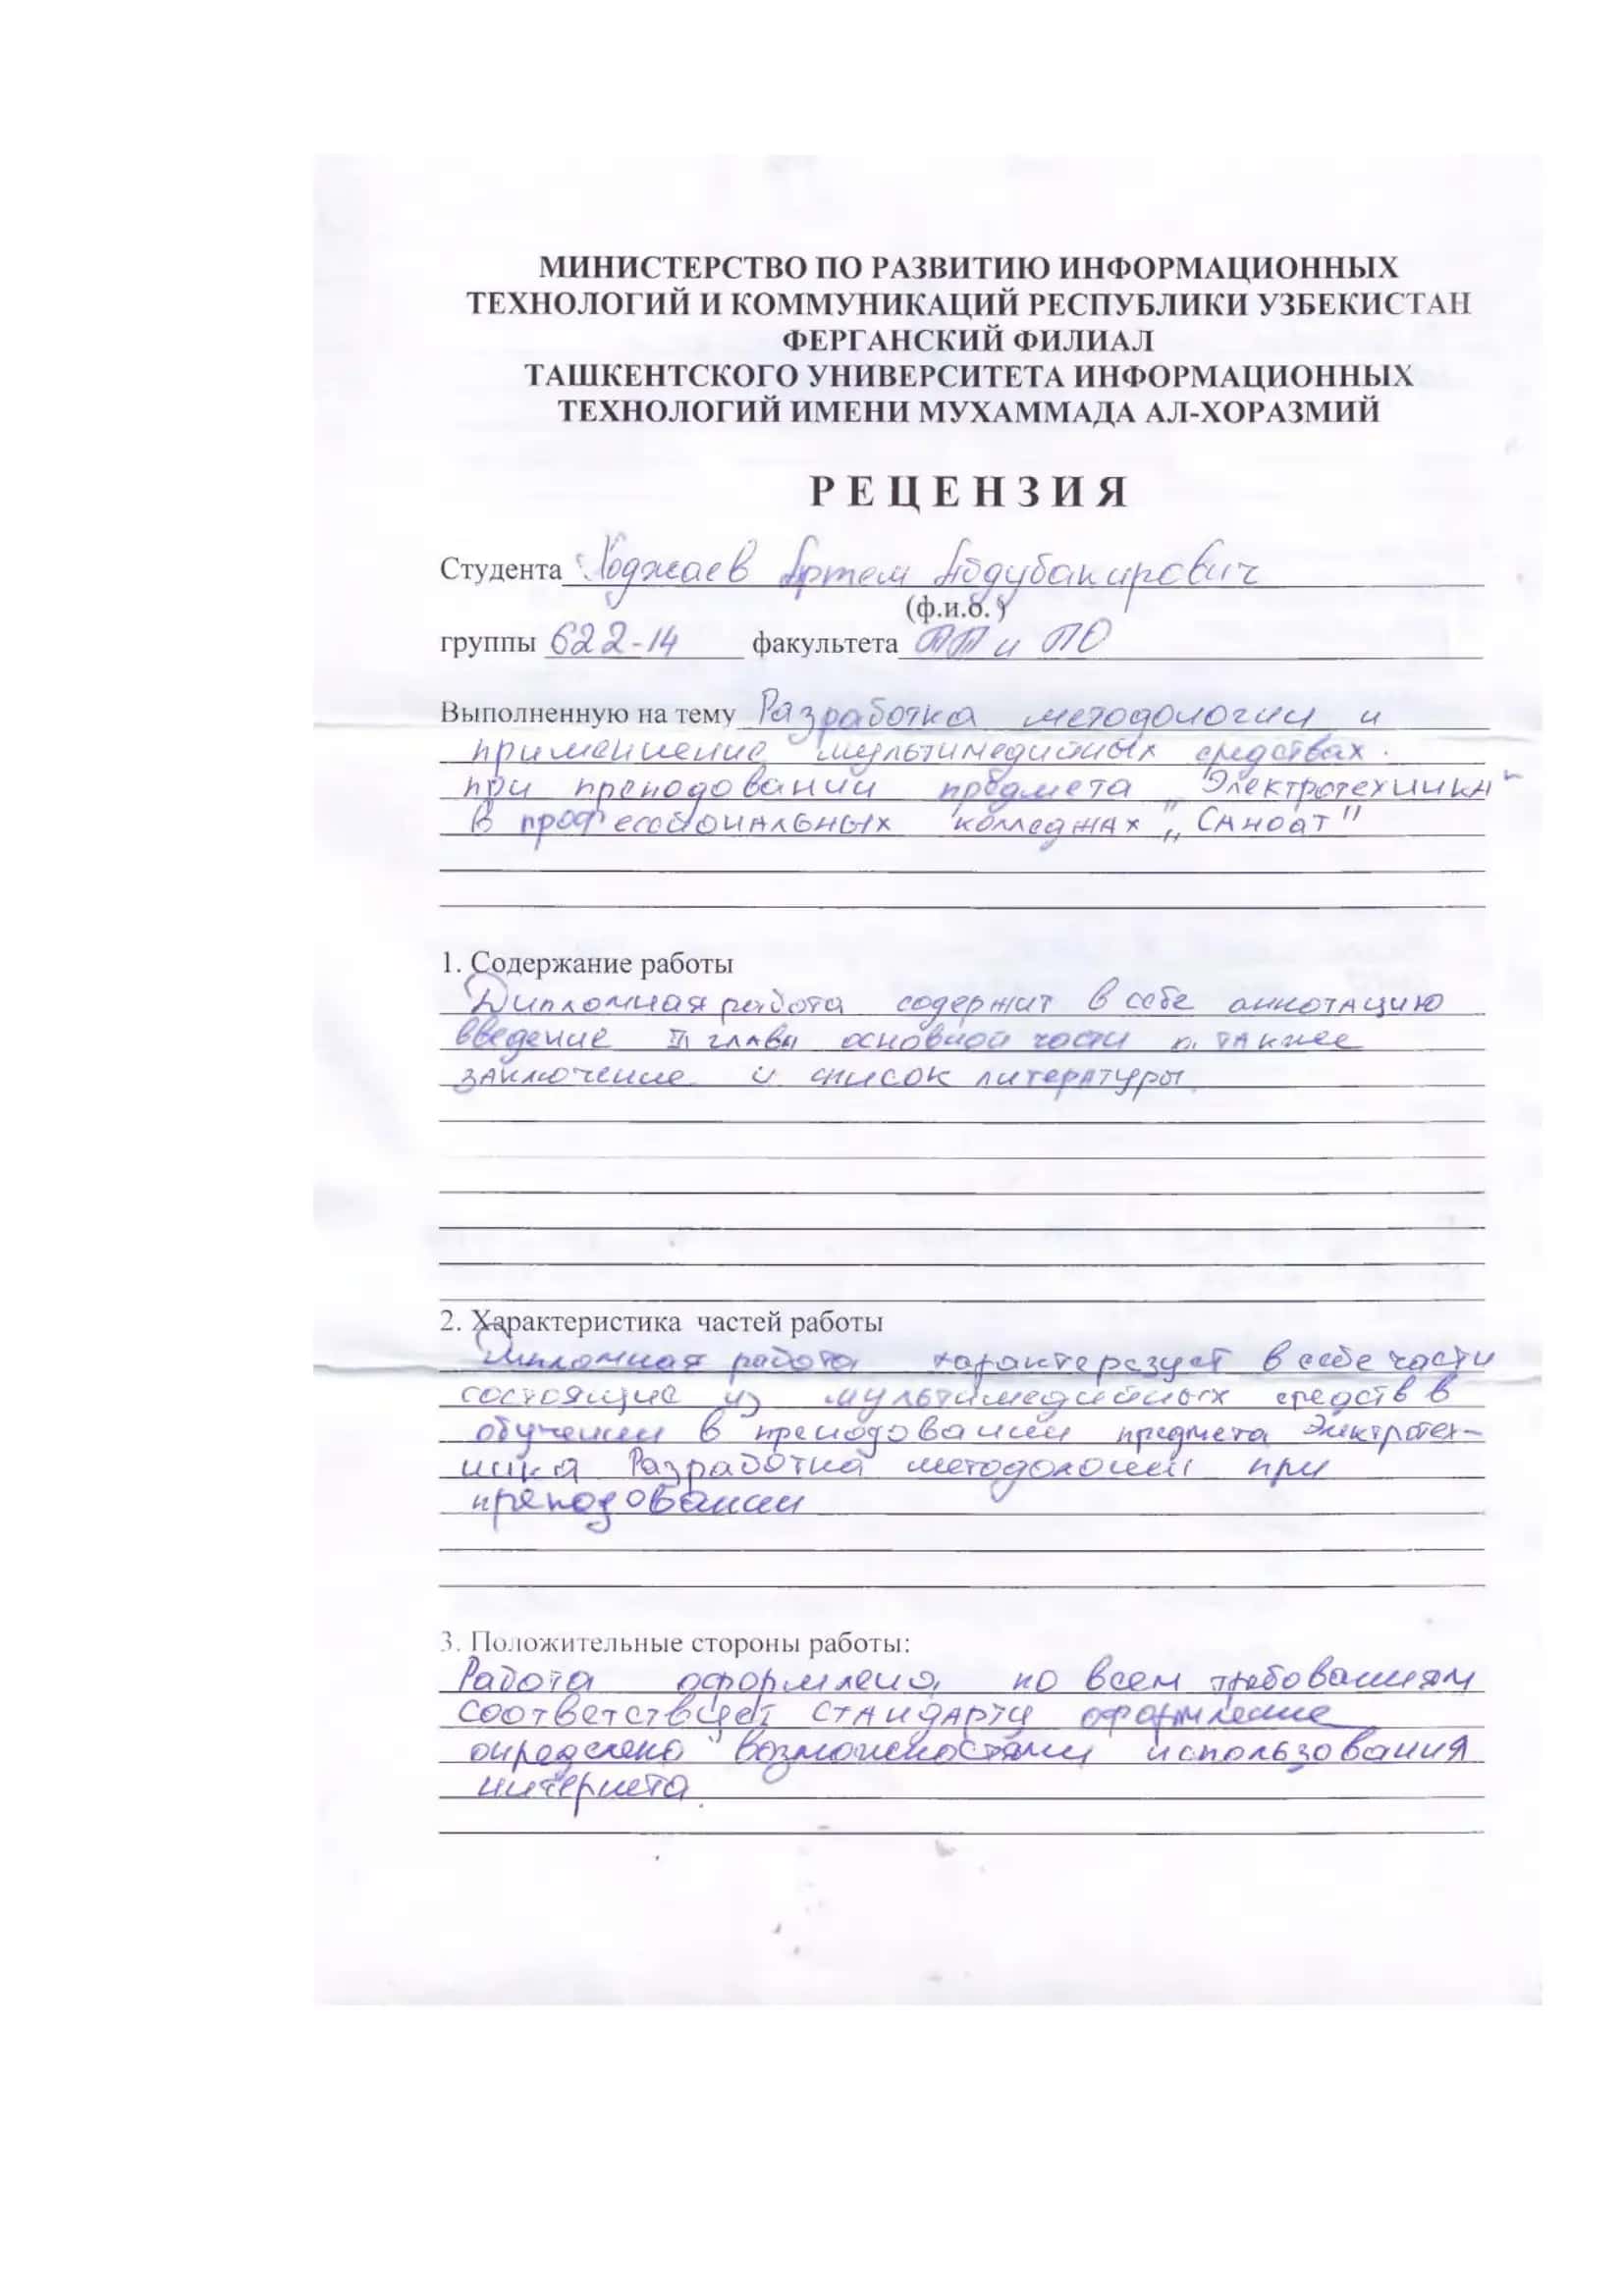 МИНИСТЕРСТВО ПО РАЗВИТИЮ ИНФОРМАЦИОННЫХ
ТЕХНОЛОГИЙ И КОММУНИКАЦИЙ РЕСПУБЛИКИ УЗБЕКИСТАН
ФЕРГАНСКИЙ ФИЛИАЛ
ТАШКЕНТСКОГО УНИВЕРСИТЕТА ИНФОРМАЦИОННЫХ
ТЕХНОЛОГИЙ ИМЕНИ МУХАММАДА АЛ-ХОРАЗМИЙ
РЕЦЕНЗИЯ
Студента Ходжаев Артем Абдубакирович
(ф.и.о.)
группы 622-14 факультета ТТ и ПО
Выполненную на тему Разработка методологии и
применшение мультимедийных средствах.
при преподовании предмета „Электротехника“
В профессиональных колледжах „Саноат"
1. Содержание работы
Дипломная работа содержит в себе аннотацию
введение III главы основной части а также
заключение и список литературы.
2. Характеристика частей работы
Дипломная работа характерезует в себе части
состоящие из мультимедийных средств в
обучении в преподовании предмета Электротех-
ника Разработка методологии при
преподовании
3. Положительные стороны работы:
Работа оформлена по всем требованиям
соответствует стандарту оформление
определено возможностями использования
интернета.